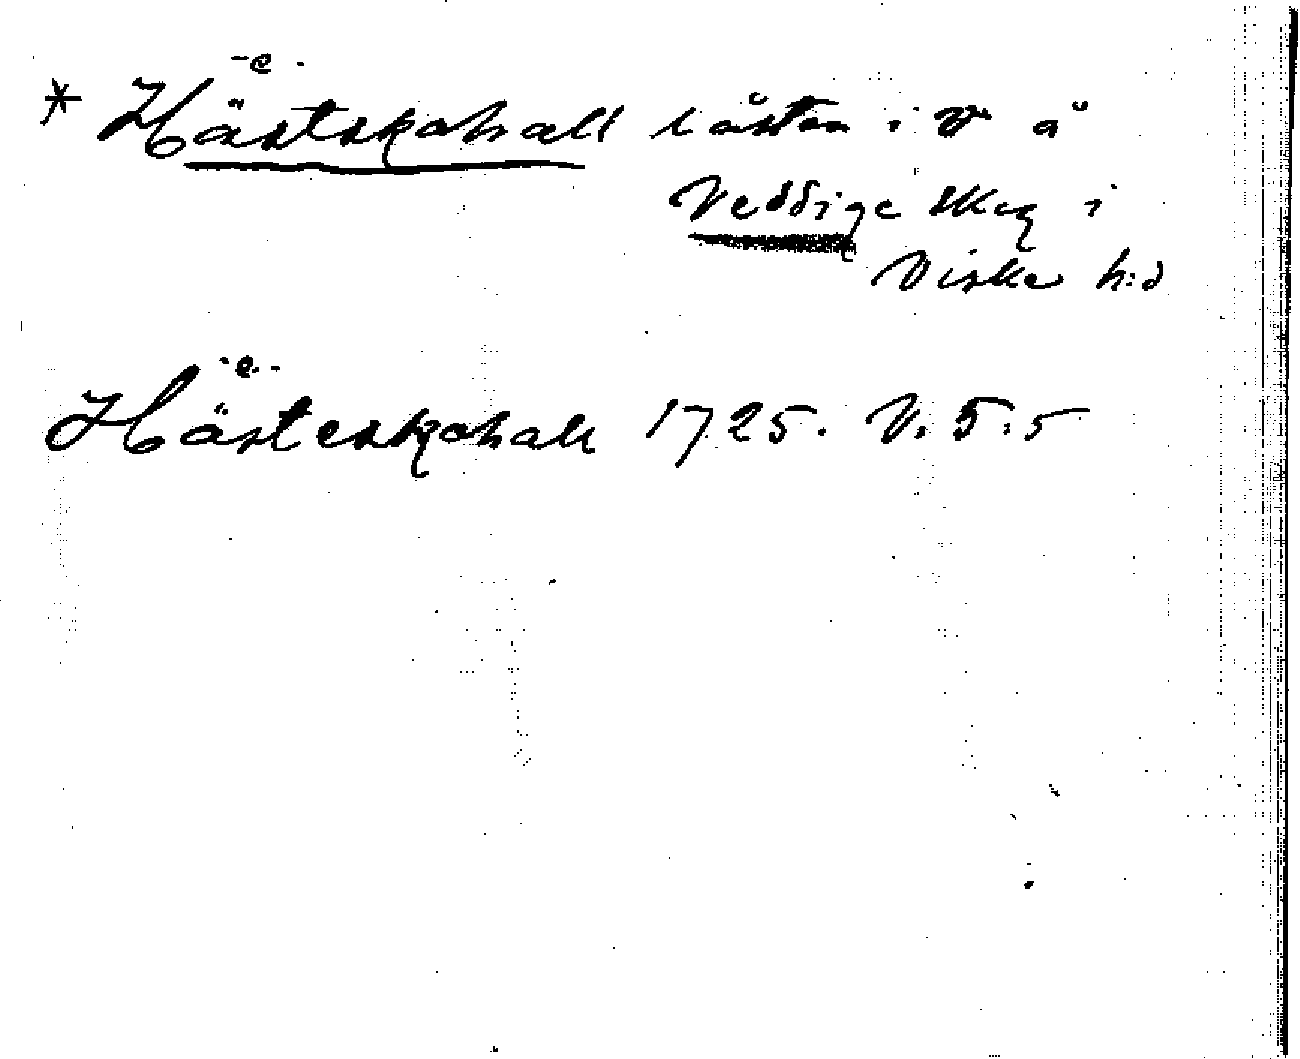 -e-
* Hästskohall i åsten i V å
Veddige skog i
Viske h:d
-e-
Hästeskohall 1725. V. 5:5